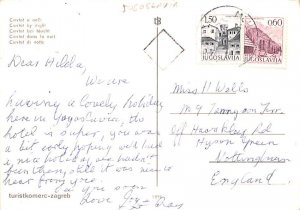 JUGOSLAVIA
Cavtat u noći
Cavtat by night
Cavtat bei Nacht
Cavtat dans la nuit
Cavtat di notte
1,50
0,60
JUGOSLAVIJA
JUGOSLAVIJA
Dear Hilda,
We are
having a lovely holiday
here in Yugoslavia, the
hotel is super, you was
a bit early hoping we'd had
a nice holiday, we hadn't
been then, still it was nice
hear from you.
See you soon
Love
Miss H Watts
M9 Tennyson Terr.
Off Rd
Hyson Green
Nottingham
England
turistkomerc-zagreb